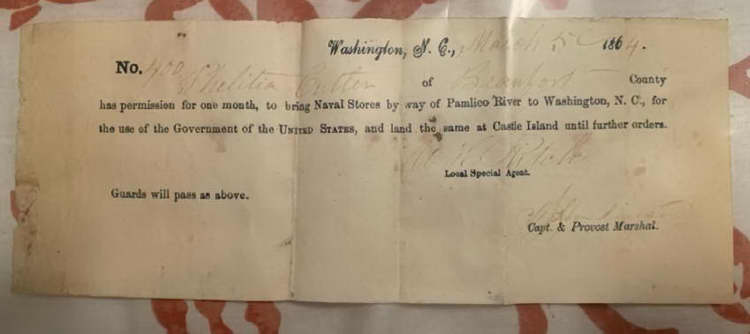 Washington, N. C., March 5 1864.
No. 400 Cutler of Beaufort County
has permission for one month, to bring Naval Stores by way of Pamlico River to Washington, N. C., for
the use of the Government of the UNITED STATES, and land the same at Castle Island until further orders.
Local Special Agent.
Guards will pass as above.
Capt. & Provost Marshal.